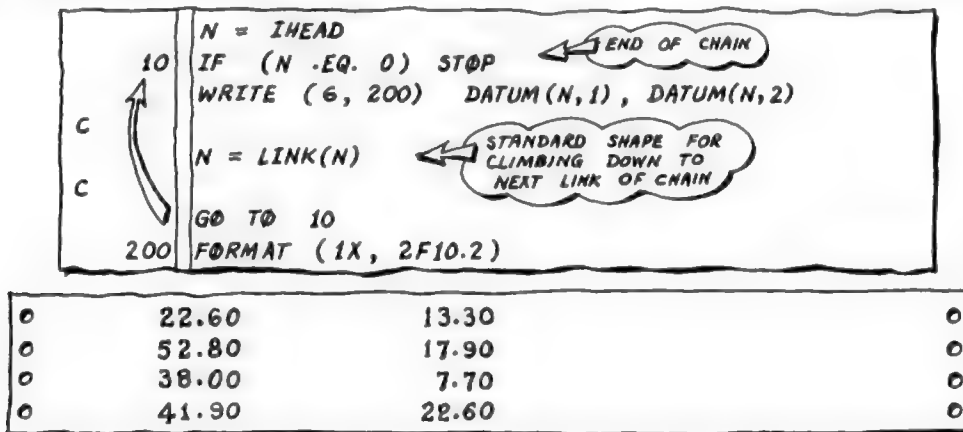 N = IHEAD
10 IF (N .EQ. 0) STØP
END OF CHAIN
WRITE (6, 200) DATUM(N,1), DATUM(N,2)
C
N = LINK(N)
STANDARD SHAPE FOR
CLIMBING DOWN TO
NEXT LINK OF CHAIN
C
GØ TØ 10
200 FØRMAT (1X, 2F10.2)
22.60 13.30
52.80 17.90
38.00 7.70
41.90 22.60